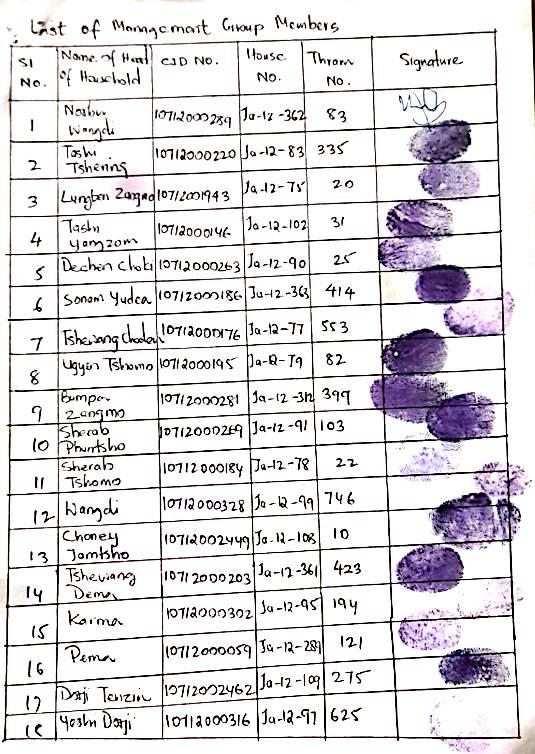 List of Management Group Members
Sl No. Name of Head of Household CID No. House No. Thram No. Signature
1 Norbu Wangdi 10712000289 Ja-12-362 83
2 Tashi Tshering 10712000220 Ja-12-83 335
3 Lungten Zangmo 10712001943 Ja-12-75 20
4 Tashi Yangzom 10712000146 Ja-12-102 31
5 Dechen Choki 10712000263 Ja-12-90 25
6 Sonam Yudea 10712000186 Ja-12-363 414
7 Tshewang Choden 10712000176 Ja-12-77 553
8 Ugyen Tshomo 10712000195 Ja-12-79 82
9 Bumpa Zangmo 10712000281 Ja-12-312 399
10 Sherab Phuntsho 10712000269 Ja-12-91 103
11 Sherab Tshomo 10712000184 Ja-12-78 22
12 Wangdi 10712000328 Ja-12-99 746
13 Choney Jamtsho 10712002449 Ja-12-108 10
14 Tshewang Dema 10712000203 Ja-12-361 423
15 Karma 10712000302 Ja-12-95 194
16 Pema 10712000059 Ja-12-289 121
17 Dorji Tenzin 10712002462 Ja-12-109 275
18 Yeshi Dorji 10712000316 Ja-12-97 625